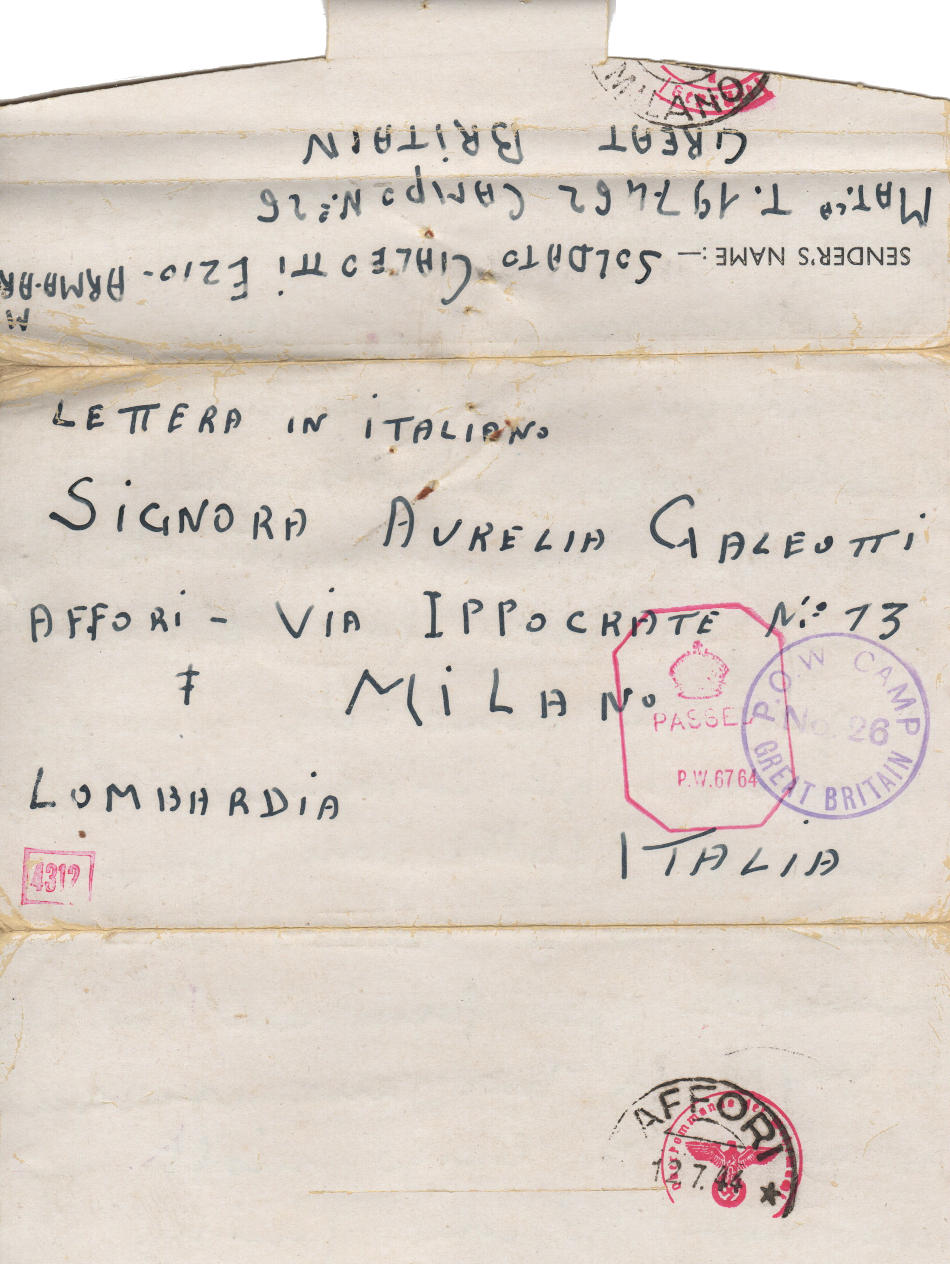 MILANO
SENDER'S NAME:— SOLDATO GALEOTTI EZIO - ARMA.AR
M
MAT.LA T.197462 CAMPO N.26
GREAT BRITAIN
LETTERA IN ITALIANO
SIGNORA AURELIA GALEOTTI
AFFORI - VIA IPPOCRATE N.° 13
MILANO
LOMBARDIA
ITALIA
PASSED
P.W.6764
P.O.W CAMP
No. 26
GREAT BRITAIN
4312
AFFORI
12.7.44